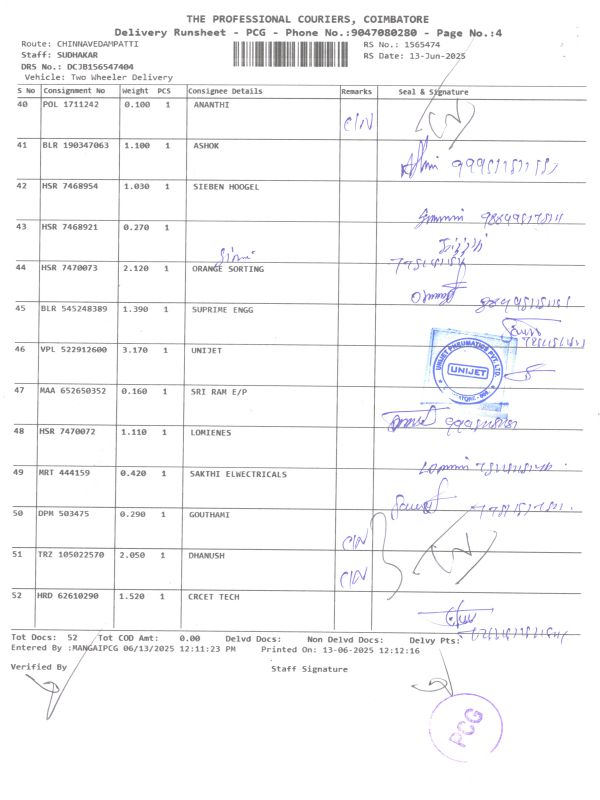 THE PROFESSIONAL COURIERS, COIMBATORE
Delivery Runsheet - PCG - Phone No.:9047080280 - Page No.:4
Route: CHINNAVEDAMPATTI RS No.: 1565474
Staff: SUDHAKAR RS Date: 13-Jun-2025
DRS No.: DCJB156547404
Vehicle: Two Wheeler Delivery
S No Consignment No Weight PCS Consignee Details Remarks Seal & Signature
40 POL 1711242 0.100 1 ANANTHI
C/N
41 BLR 190347063 1.100 1 ASHOK
42 HSR 7468954 1.030 1 SIEBEN HOOGEL
43 HSR 7468921 0.270 1
44 HSR 7470073 2.120 1 ORANGE SORTING
45 BLR 545248389 1.390 1 SUPRIME ENGG
46 VPL 522912600 3.170 1 UNIJET
UNIJET PNEUMATICS PVT LTD
UNIJET
47 MAA 652650352 0.160 1 SRI RAM E/P
48 HSR 7470072 1.110 1 LOMIENES
49 MRT 444159 0.420 1 SAKTHI ELWECTRICALS
50 DPM 503475 0.290 1 GOUTHAMI
C/N
51 TRZ 105022570 2.050 1 DHANUSH
C/N
52 HRD 62610290 1.520 1 CRCET TECH
Tot Docs: 52 Tot COD Amt: 0.00 Delvd Docs: Non Delvd Docs: Delvy Pts:
Entered By :MANGAIPCG 06/13/2025 12:11:23 PM Printed On: 13-06-2025 12:12:16
Verified By Staff Signature
PCG